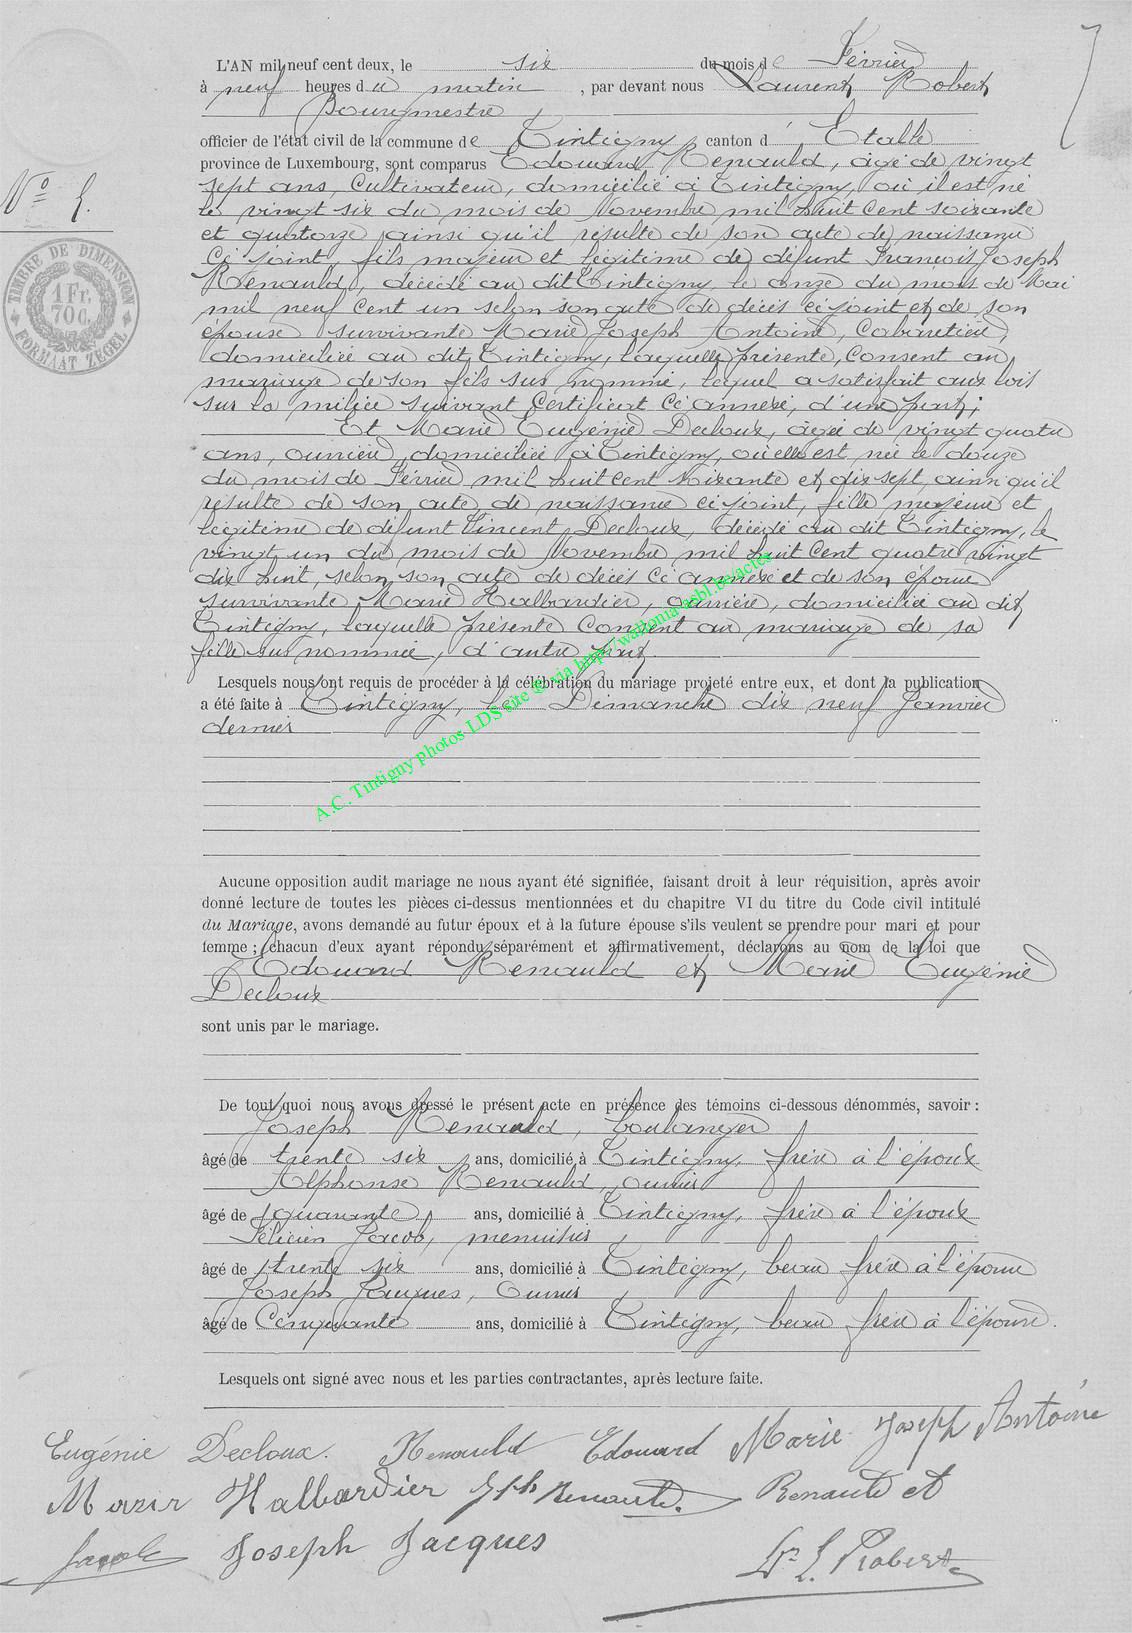 L'AN mil neuf cent deux, le six du mois de Février
à neuf heures du matin, par devant nous Laurent Robert
Bourgmestre
officier de l'état civil de la commune de Tintigny canton d'Etalle
province de Luxembourg, sont comparus Edouard Renauld, âgé de vingt
N° 5.
sept ans, Cultivateur, domicilié à Tintigny, où il est né
le vingt six du mois de Novembre mil huit cent soixante
et quatorze ainsi qu'il résulte de son acte de naissance
TIMBRE DE DIMENSION
1 Fr. 70 C.
FORMAAT ZEGEL
ci joint, fils majeur et légitime de défunt François Joseph
Renauld, décédé au dit Tintigny, le onze du mois de Mai
mil neuf cent un selon son acte de décès ci joint et de son
épouse survivante Marie Joseph Antoine, Cabaretière,
domiciliée au dit Tintigny, laquelle présente, consent au
mariage de son fils sus nommé, lequel a satisfait aux lois
sur la milice suivant certificat ci annexé, d'une part;
Et Marie Eugénie Decloux, âgée de vingt quatre
ans, ouvrière, domiciliée à Tintigny, où elle est née le douze
du mois de Février mil huit cent soixante et dix sept, ainsi qu'il
résulte de son acte de naissance ci joint, fille majeure et
légitime de défunt Vincent Decloux, décédé au dit Tintigny, le
vingt un du mois de Novembre mil huit cent quatre vingt
dix huit, selon son acte de décès ci annexé et de son épouse
survivante Marie Halbardier, ouvrière, domiciliée au dit
Tintigny, laquelle présente consent au mariage de sa
fille sus nommée, d'autre part.
Lesquels nous ont requis de procéder à la célébration du mariage projeté entre eux, et dont la publication
a été faite à Tintigny, le Dimanche dix neuf Janvier
dernier
A.C. Tintigny photos LDS site © via http://wallonia-asbl.be/actes
Aucune opposition audit mariage ne nous ayant été signifiée, faisant droit à leur réquisition, après avoir
donné lecture de toutes les pièces ci-dessus mentionnées et du chapitre VI du titre du Code civil intitulé
du Mariage, avons demandé au futur époux et à la future épouse s'ils veulent se prendre pour mari et pour
femme ; chacun d'eux ayant répondu séparément et affirmativement, déclarons au nom de la loi que
Edouard Renauld et Marie Eugénie
Decloux
sont unis par le mariage.
De tout quoi nous avons dressé le présent acte en présence des témoins ci-dessous dénommés, savoir :
Joseph Renauld, boulanger
âgé de trente six ans, domicilié à Tintigny, frère à l'époux
Alphonse Renauld, ouvrier
âgé de quarante ans, domicilié à Tintigny, frère à l'époux
Félicien Jacob, menuisier
âgé de trente six ans, domicilié à Tintigny, beau frère à l'épouse
Joseph Jacques, Ouvrier
âgé de Cinquante ans, domicilié à Tintigny, beau frère à l'épouse.
Lesquels ont signé avec nous et les parties contractantes, après lecture faite.
Eugénie Decloux. Renauld Edouard Marie Joseph Antoine
Marie Halbardier Jph Renauld. Renauld
Jacob Joseph Jacques L. Robert